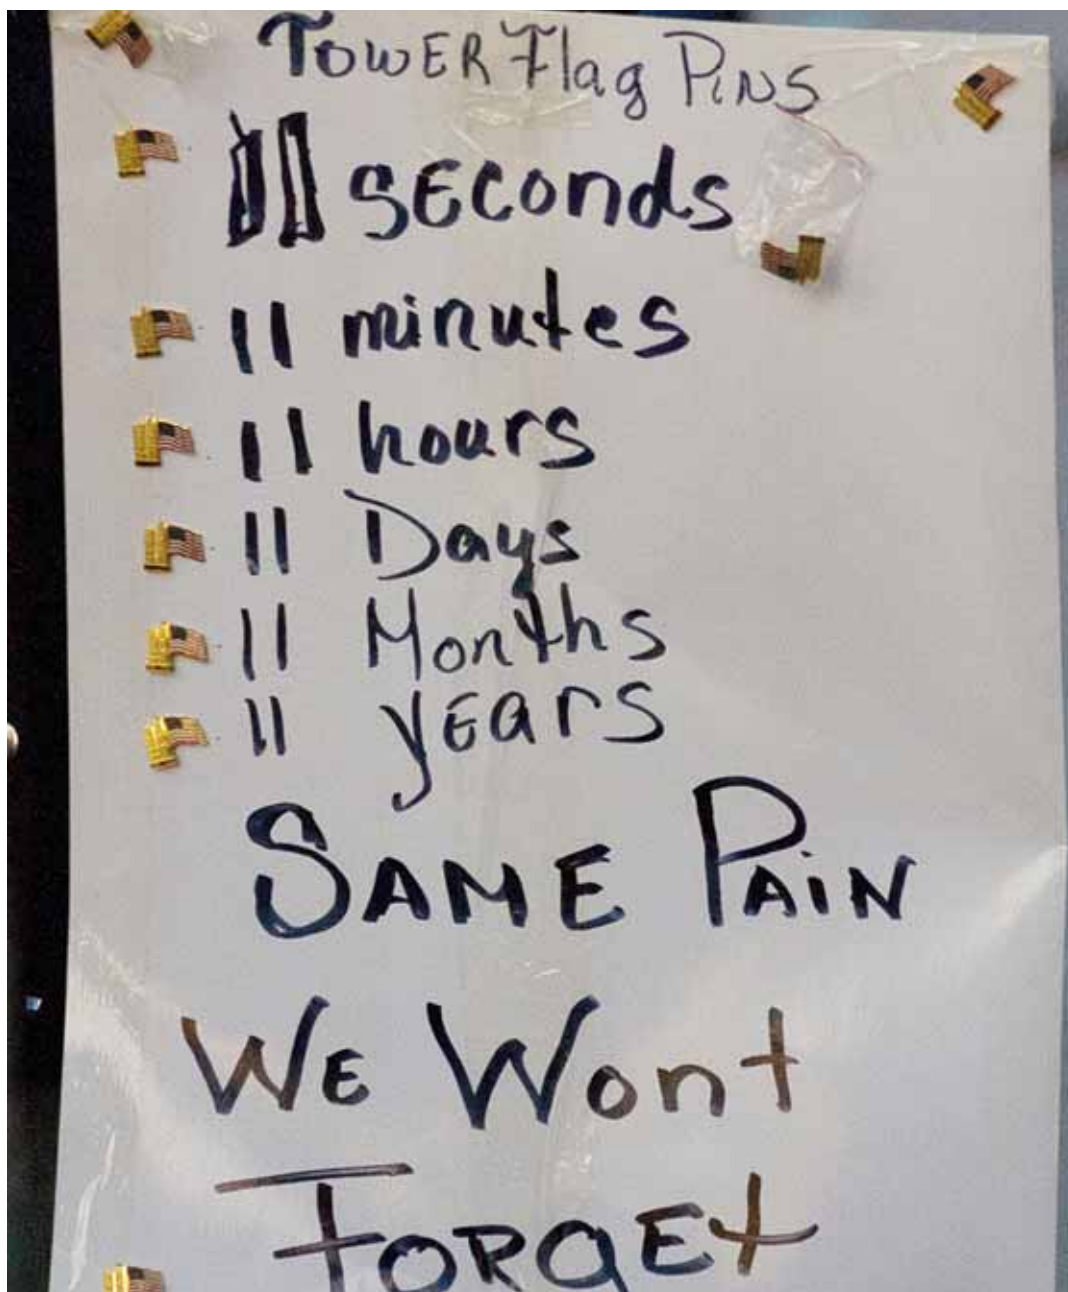 TOWER Flag PiNS
11 SECondS
11 minutes
11 hours
11 Days
11 Months
11 yEarS
SAME PAiN
WE Wont
FORGEt